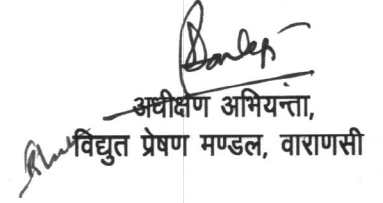 अधीक्षण अभियन्ता,
विद्युत प्रेषण मण्डल, वाराणसी